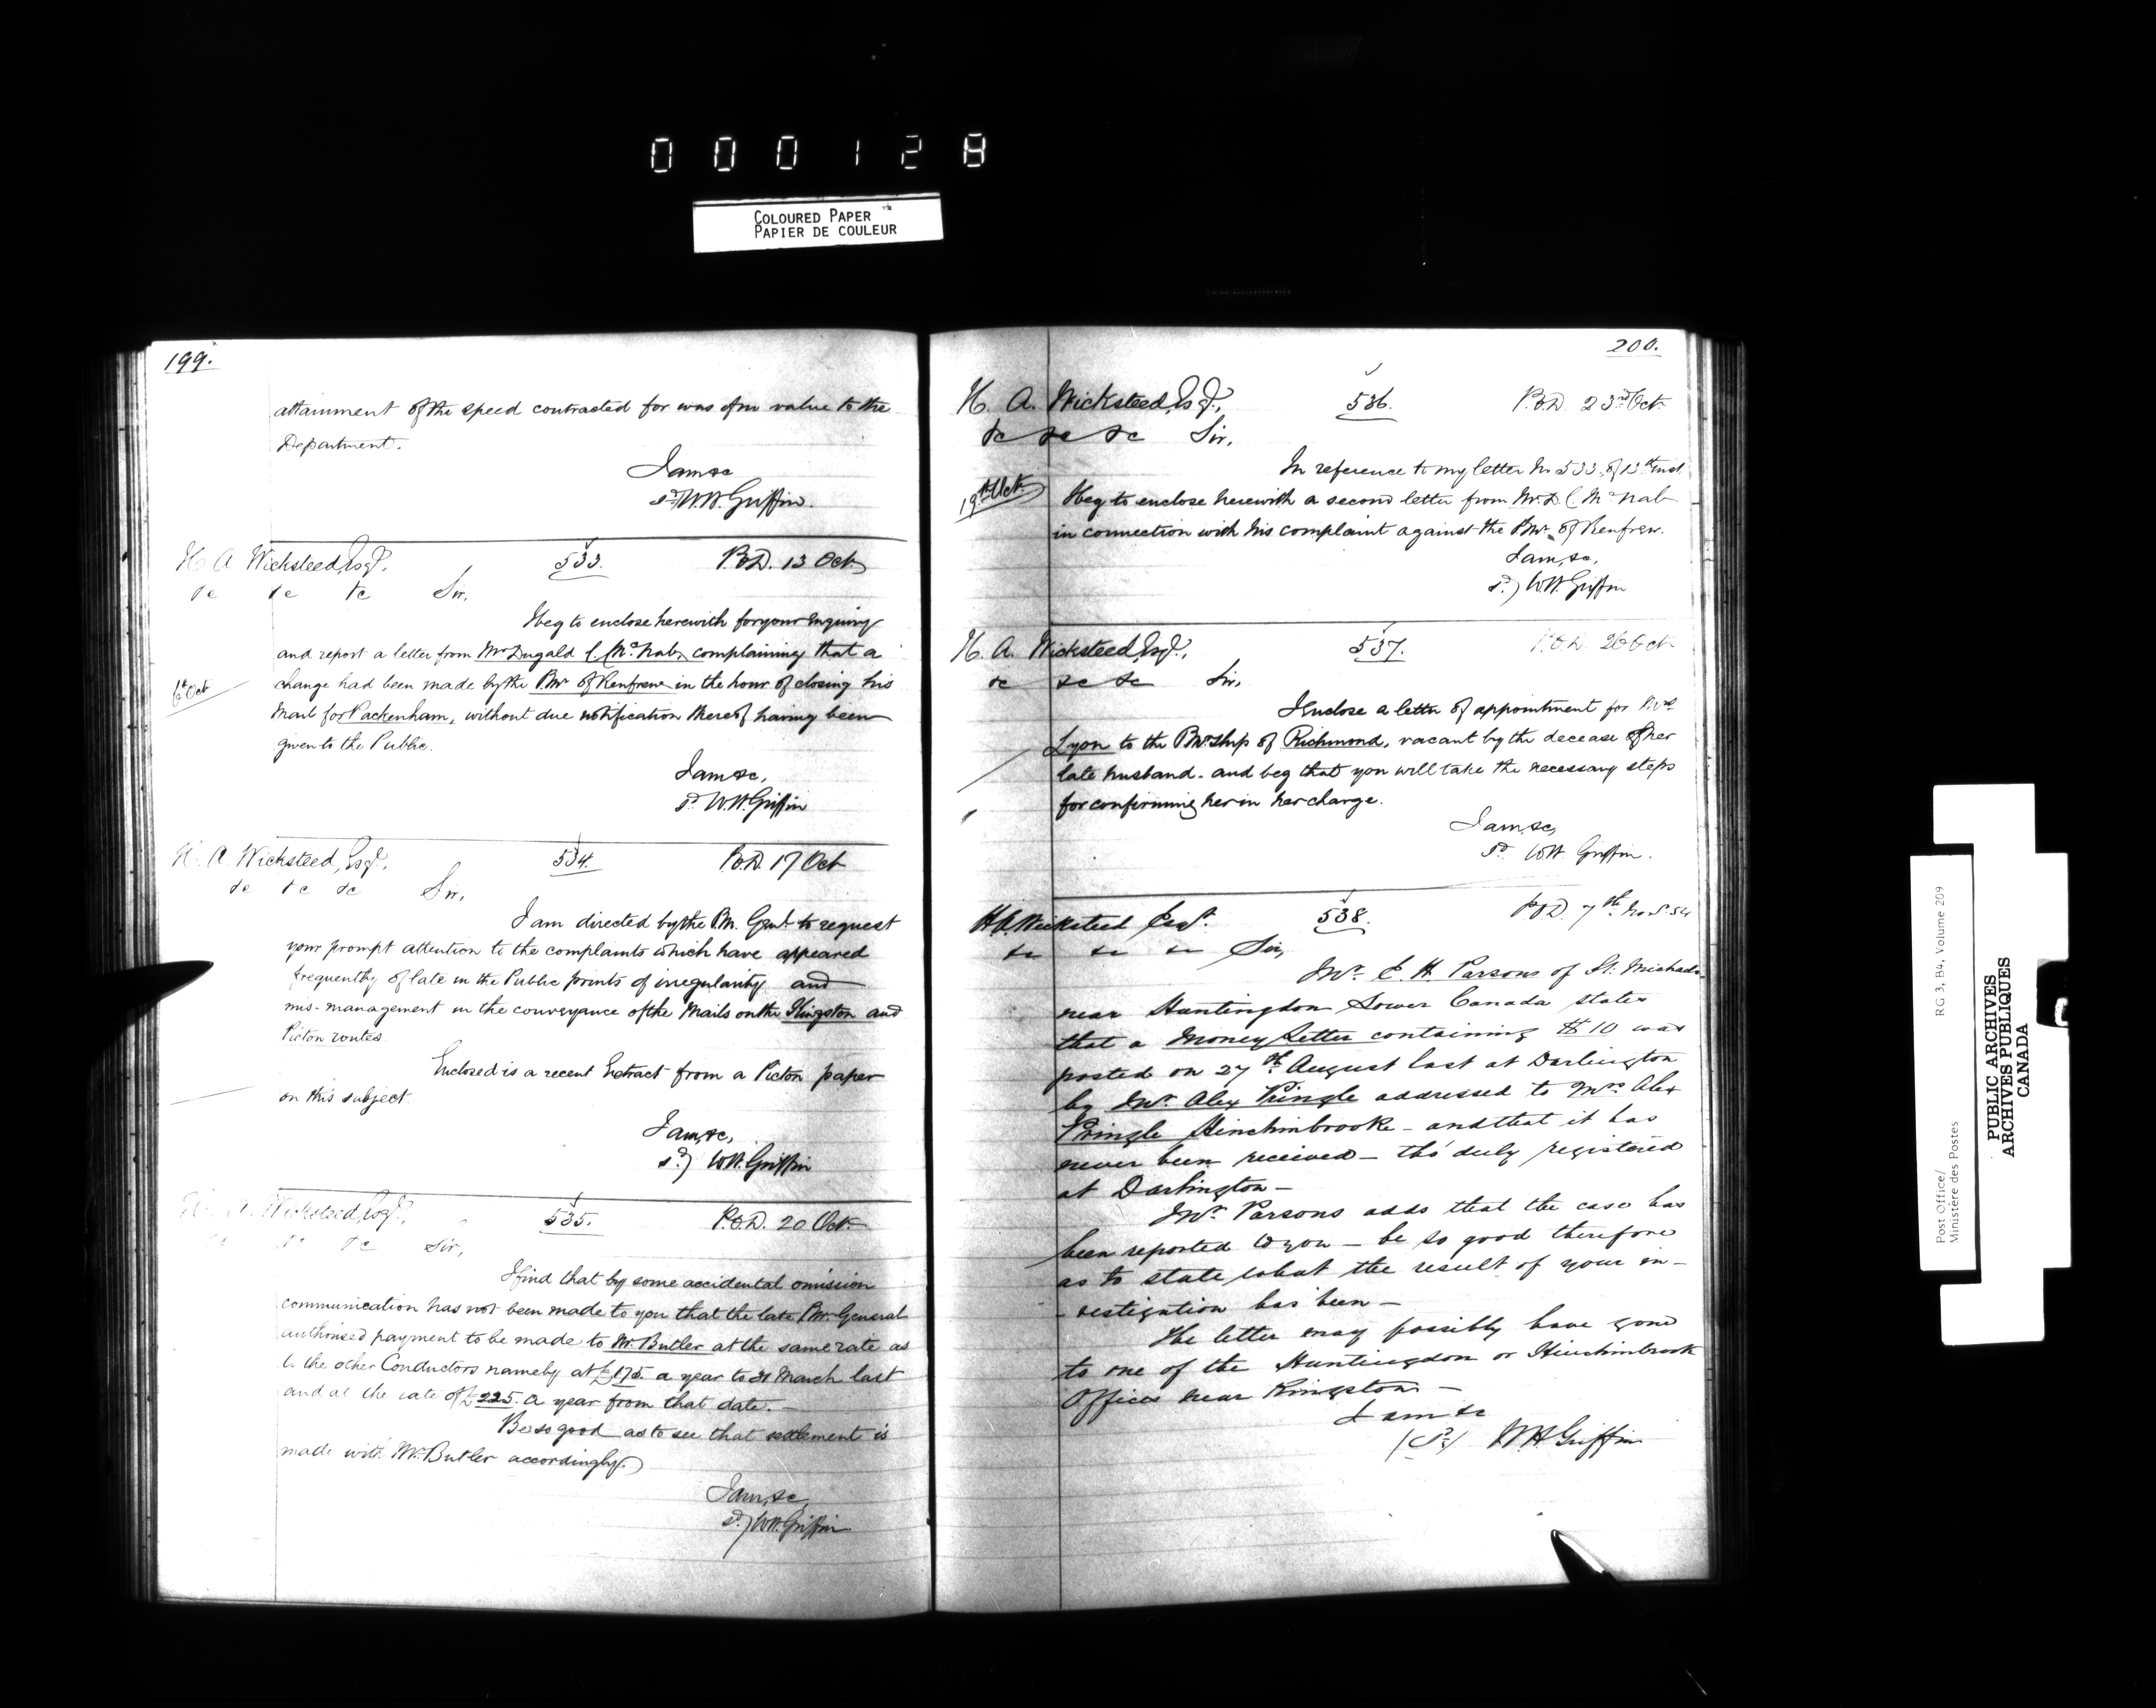 000128
COLOURED PAPER
PAPIER DE COULEUR
199.
attainment of the speed contracted for was of no value to the
Department.
I am &c
sd W.H. Griffin.
H A Wicksteed, Esqr. 533. P.O.D. 13 Oct
&c &c &c Sir,
I beg to enclose herewith for your enquiry
and report a letter from Mr Dugald C. McNab, complaining that a
6th Oct
change had been made by the Pmr of Renfrew in the hour of closing his
Mail for Packenham, without due notification thereof having been
given to the Public.
I am &c,
sd W.H. Griffin
H. A Wicksteed, Esqr. 534. P.O.D. 17 Oct
&c &c &c Sir,
I am directed by the P.M. Genl to request
your prompt attention to the complaints which have appeared
frequently of late in the Public prints of irregularity and
mis-management in the conveyance of the Mails on the Kingston and
Picton routes
Enclosed is a recent Extract from a Picton paper
on this subject.
I am, &c,
sd) W.H. Griffin
H. A. Wicksteed, Esqr. 535. P.O.D. 20 Oct.
&c &c &c Sir,
I find that by some accidental omission
communication has not been made to you that the late Pmr General
authorised payment to be made to Mr. Butler at the same rate as
to the other Conductors namely at £175 a year to 31 March last
and at the rate of £225. a year from that date.—
Be so good as to see that settlement is
made with Mr Butler accordingly.
I am, &c
sd) W.H. Griffin
200.
H. A. Wicksteed, Esqr., 536. P.O.D 23rd Oct.
&c &c &c Sir,
In reference to my letter No 533. of 13th inst.
19th Oct
I beg to enclose herewith a second letter from Mr. D C McNab
in connection with his complaint against the Pmr. of Renfrew.
I am, &c,
sd.) W.H. Griffin
H. A. Wicksteed, Esqr., 537. P.O.D. 26 Oct
&c &c &c Sir,
I enclose a letter of appointment for Mrs
Lyon to the Pmrship of Richmond, vacant by the decease of her
late husband. and beg that you will take the necessary steps
for confirming her in her charge.
I am, &c,
sd W.H. Griffin.
H A. Wicksteed Esqr. 538. P.O.D. 7th Nov. 54
&c &c &c Sir,
Mr. E. H. Parsons of St. Michaels
near Huntingdon Lower Canada states
that a Money Letter containing $10 was
posted on 27th August last at Darlington
by Mr. Alex Pringle addressed to Mrs Alex
Pringle Hinchinbrooke – and that it has
never been received – tho' duly registered
at Darlington –
Mr. Parsons adds that the case has
been reported to you – be so good therefore
as to state what the result of your in-
-vestigation has been –
The letter may possibly have gone
to one of the Huntingdon or Hinchinbrook
Offices near Kingston –
I am &c
(sd) W H Griffin
Post Office/
Ministère des Postes
RG 3, B4, Volume 209
PUBLIC ARCHIVES
ARCHIVES PUBLIQUES
CANADA